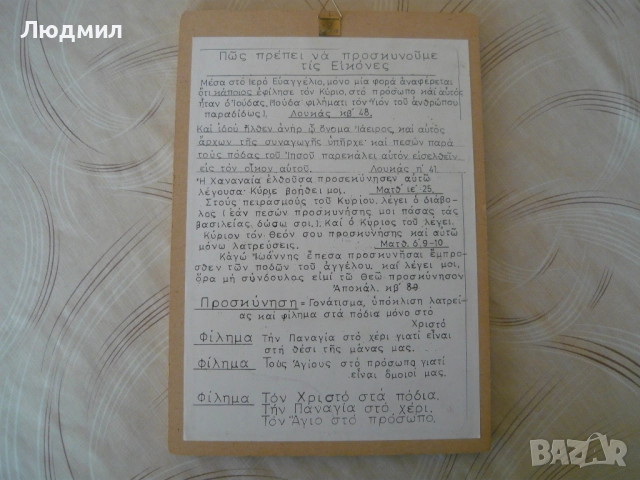 Людмил
Πῶς πρέπει νά προσκυνοῦμε
τίς Εἰκόνες
Μέσα στό Ἱερό Εὐαγγέλιο, μόνο μία φορά ἀναφέρεται
ὅτι κάποιος ἐφίλησε τόν Κύριο, στό πρόσωπο καί αὐτός
ἦταν ὁ Ἰούδας, (Ἰούδα φιλήματι τόν Υἱόν τοῦ ἀνθρώπου
παραδίδως). Λουκάς κβ΄ 48.
Καί ἰδού ἦλθεν ἀνήρ ᾧ ὄνομα Ἰάειρος, καί αὐτός
ἄρχων τῆς συναγωγῆς ὑπῆρχε· καί πεσών παρά
τούς πόδας τοῦ Ἰησοῦ παρεκάλει αὐτόν εἰσελθεῖν
εἰς τόν οἶκον αὐτοῦ. Λουκάς η΄ 41.
Ἡ Χαναναία ἐλθοῦσα προσεκύνησεν αὐτῷ
λέγουσα· Κύριε βοήθει μοι. Ματθ ιε΄ 25.
Στούς πειρασμούς τοῦ Κυρίου, λέγει ὁ διάβο-
λος (ἐάν πεσών προσκυνήσης μοι πάσας τάς
βασιλείας, δώσω σοι.). Καί ὁ Κύριος τοῦ λέγει.
Κύριον τόν Θεόν σου προσκυνήσης καί αὐτῷ
μόνω λατρεύσεις. Ματθ. δ΄ 9-10.
Κἀγώ Ἰωάννης ἔπεσα προσκυνῆσαι ἔμπρο-
σθεν τῶν ποδῶν τοῦ ἀγγέλου, καί λέγει μοι,
ὅρα μή σύνδουλος εἰμί τῶ Θεῶ προσκύνησον
Ἀποκάλ. κβ΄ 8-9
Προσκύνηση = Γονάτισμα, ὑπόκλιση λατρεί-
ας καί φίλημα στά πόδια μόνο στό
Χριστό
Φίλημα Τήν Παναγία στό χέρι γιατί εἶναι
στή θέσι τῆς μάνας μας.
Φίλημα Τούς Ἁγίους στό πρόσωπο γιατί
εἶναι ὅμοιοί μας.
Φίλημα Τόν Χριστό στά πόδια.
Τήν Παναγία στό χέρι.
Τόν Ἅγιο στό πρόσωπο.
BAZAR